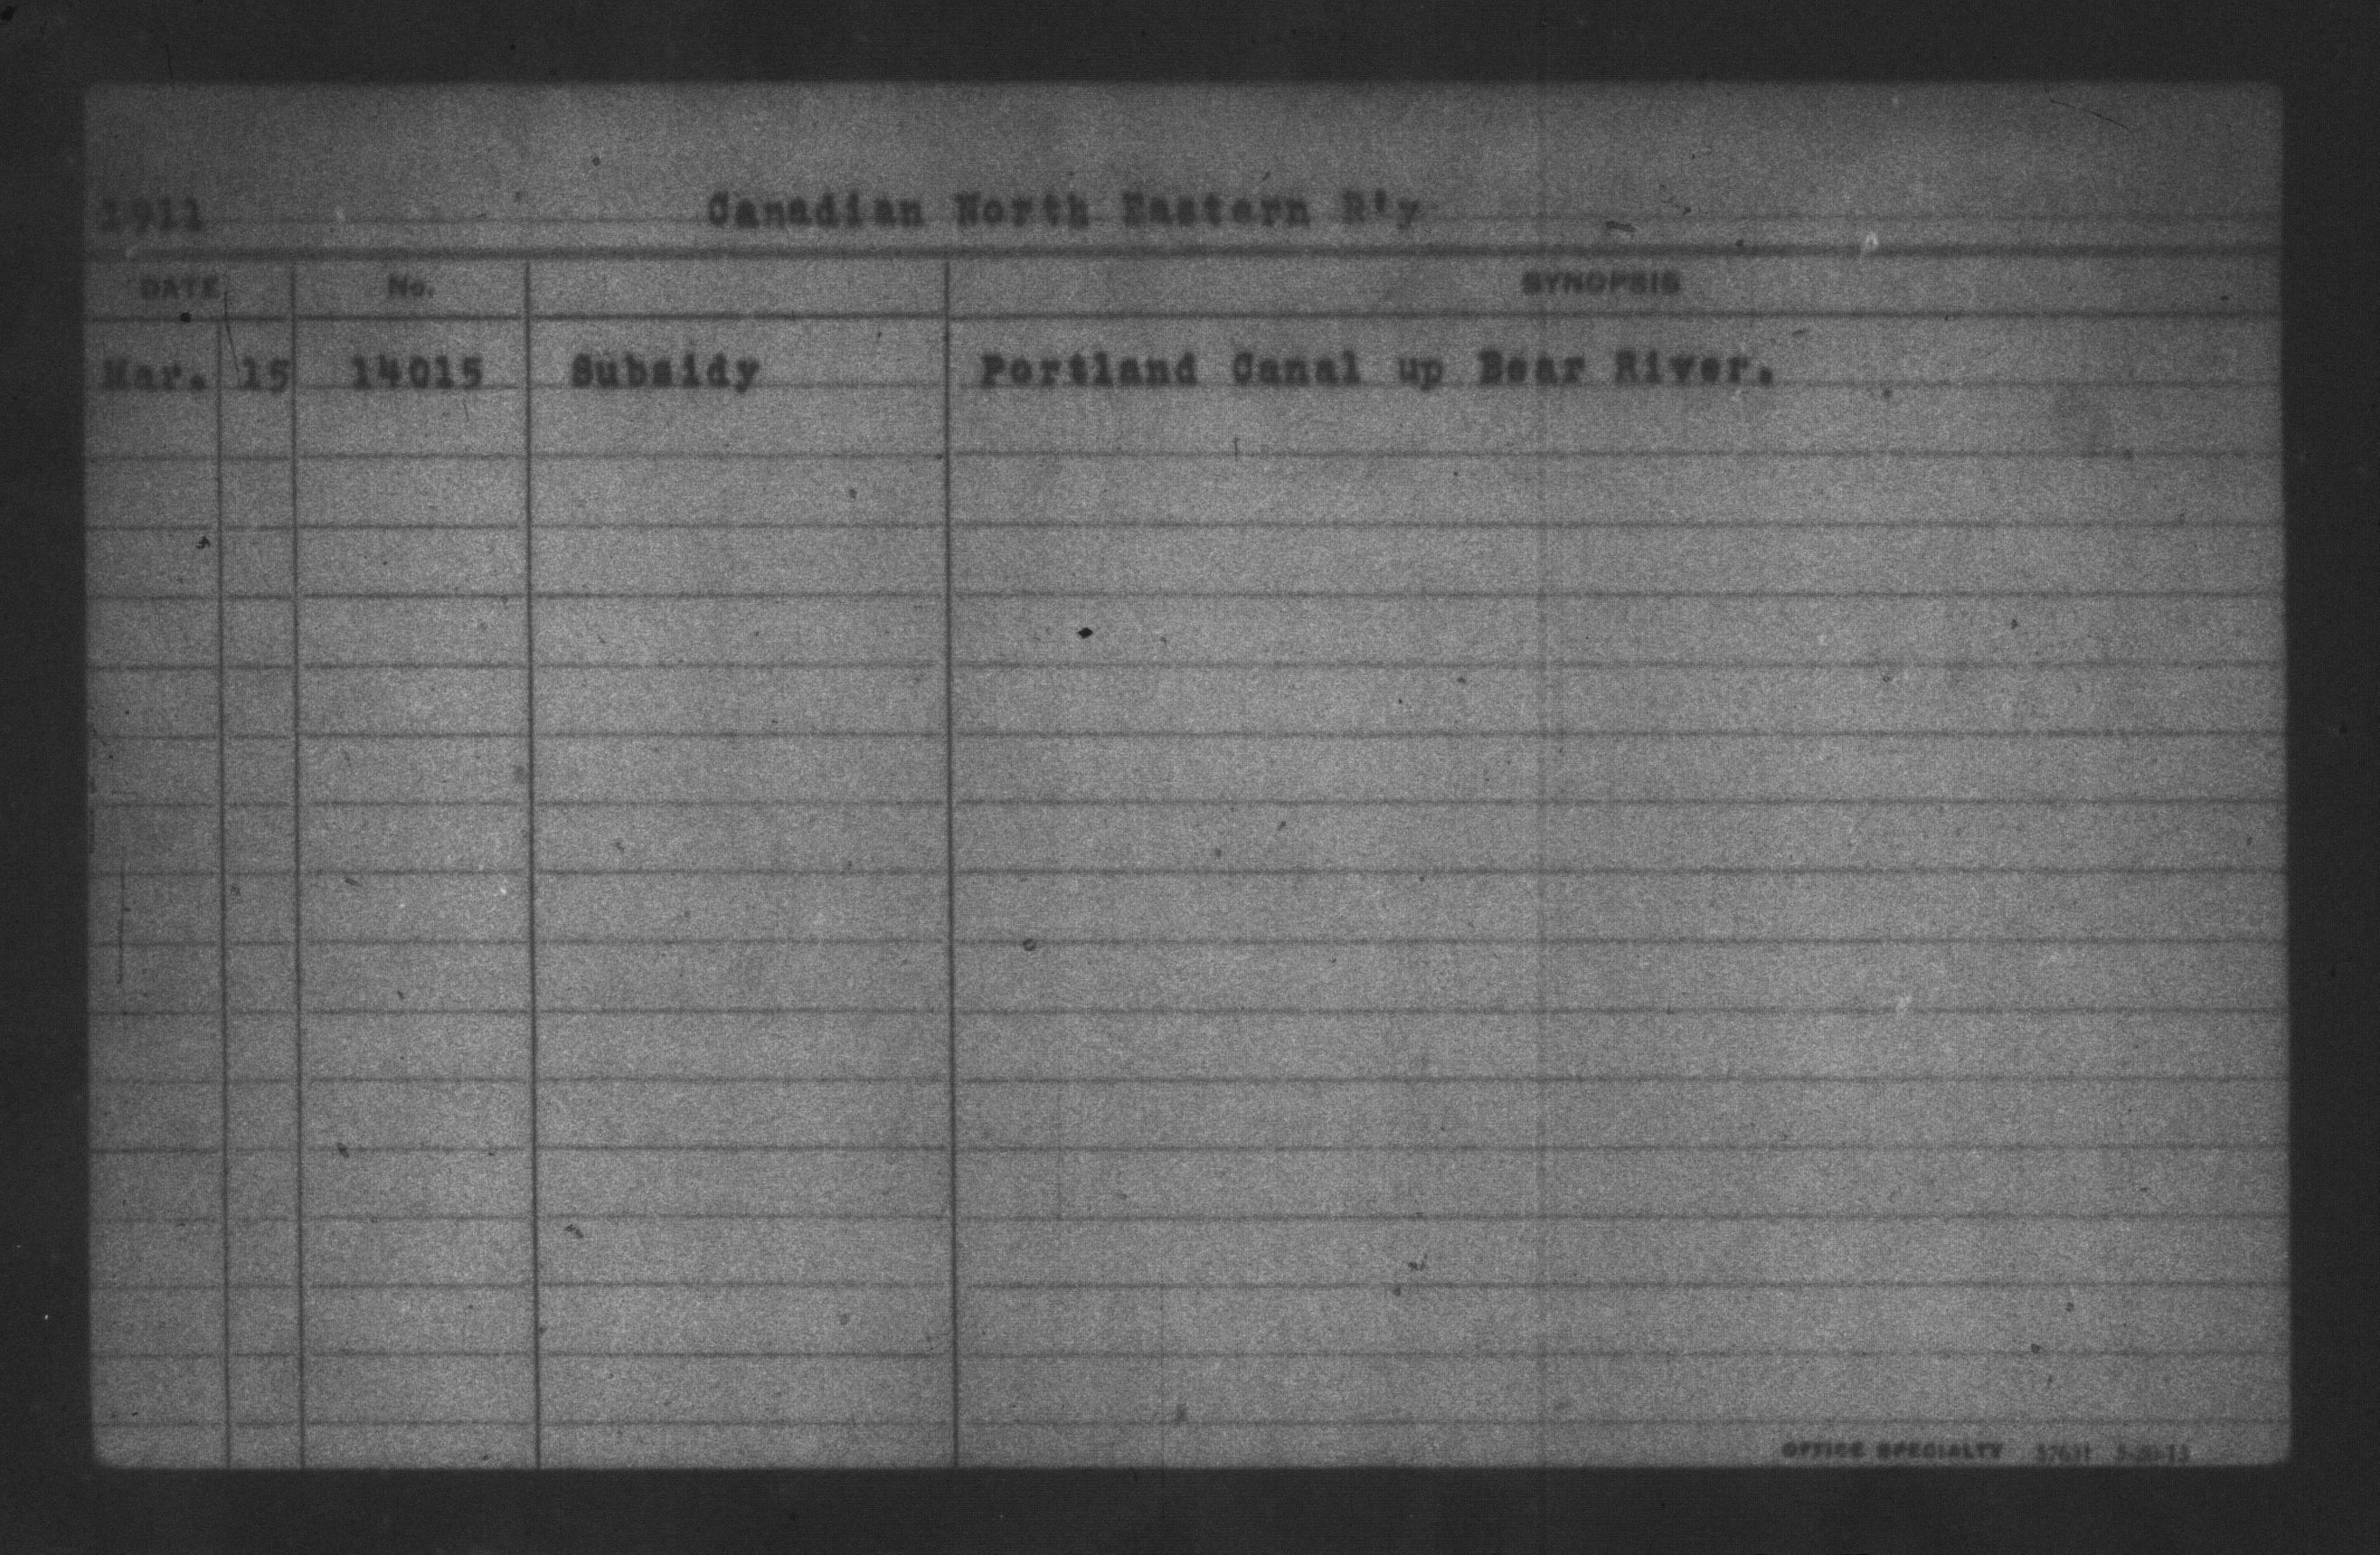 1911 Canadian North Eastern R'y
DATE No. SYNOPSIS
Mar. 15 14015 Subsidy Portland Canal up Bear River.
OFFICE SPECIALTY